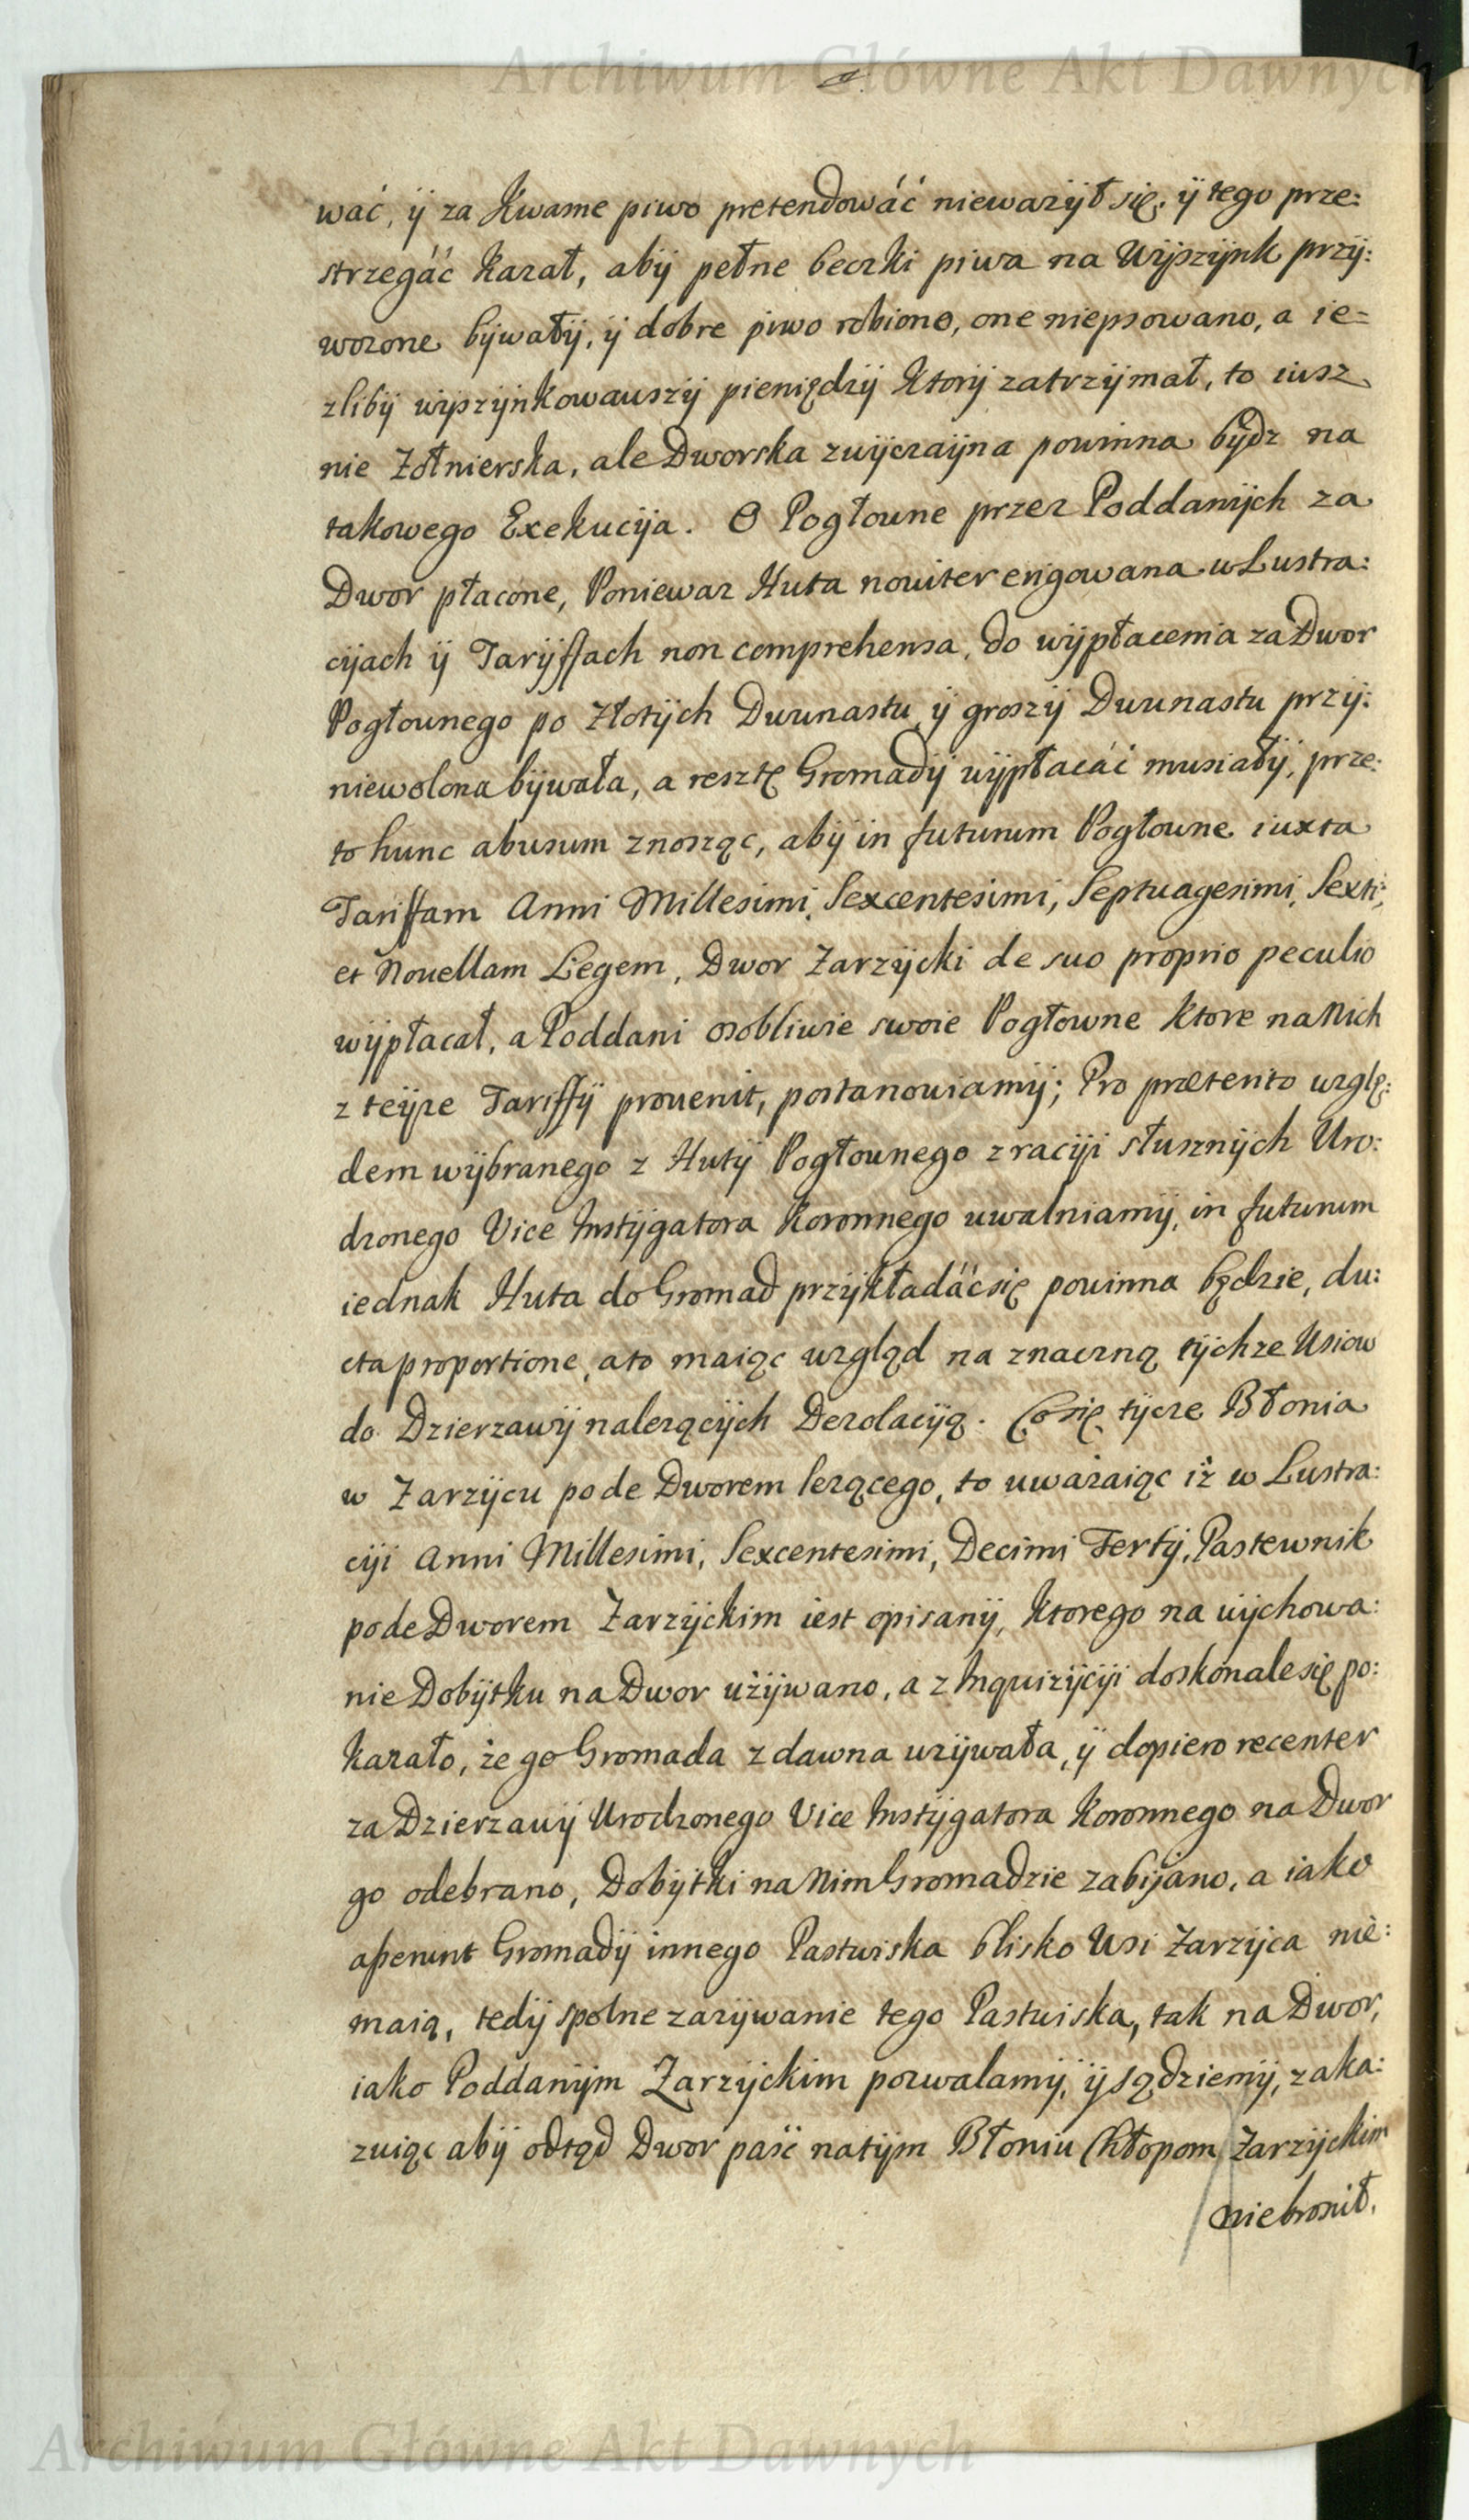 Archiwum Główne Akt Dawnych
wać, ÿ za Kwasne piwo pretendowáć niewazÿł się, ÿ tego prze:
strzegáć Kazał, abÿ pełne beczki piwa na Wÿszÿnk przÿ:
wozone bÿwałÿ, ÿ dobre piwo robiono, one niepsowano, a ie=
zlibÿ wÿszÿnkowauszÿ pieniędzÿ Ktorÿ zatrzÿmał, to iusz
nie Zołnierska, ale Dworska zwÿczaÿna powinna bÿdz na
takowego Exekucÿa. O Pogłowne przez Poddanÿch za
Dwor płacone, Poniewaz Huta nouiter erigowana w Lustra:
cÿach ÿ Tarÿffach non comprehensa, do wÿpłacenia za Dwor
Pogłownego po Złotÿch Dwunastu ÿ groszÿ Dwunastu przÿ:
niewolona bÿwała, a resztę Gromadÿ wÿpłacáć musiałÿ, prze:
to hunc abusum znosząc, abÿ in futurum Pogłowne iuxta
Tariffam Anni Millesimi, Sexcentesimi, Septuagesimi, Sexti,
et Nouellam Legem, Dwor Zarzÿcki de suo proprio peculio
wÿpłacał, a Poddani osobliwie swoie Pogłowne Ktore na Nich
z teÿze Tariffÿ prouenit, postanowiamÿ; Pro præterito wzglę:
dem wÿbranego z Hutÿ Pogłownego z raciÿi słusznÿch Uro:
dzonego Vice Instÿgatora Koronnego uwalniamÿ, in futurum
iednak Huta do Gromad przÿkładáć się powinna będzie, du:
cta proportione, a to maiąc wzgląd na znaczną tÿchze Wsiow
do Dzierzawÿ nalezącÿch Dezolacÿą. Co się tÿcze Błonia
w Zarzÿcu pode Dworem lezącego, to uważaiąc iż w Lustra:
cÿi Anni Millesimi, Sexcentesimi, Decimi Tertÿ, Pastewnik
pode Dworem Zarzÿckim iest opisanÿ, Ktorego na wÿchowa:
nie Dobÿtku na Dwor użÿwano, a z Inquizÿcÿi doskonale się po:
kazało, że go Gromada z dawna uzÿwała, ÿ dopiero recenter
za Dzierzawÿ Urodzonego Vice Instÿgatora Koronnego na Dwor
go odebrano, Dobÿtki na Nim Gromadzie zabijano, a iako
aperunt Gromadÿ innego Pastwiska blisko Wsi Zarzÿca nie:
maią, tedÿ spolne zazÿwanie tego Pastwiska, tak na Dwor,
iako Poddanÿm Zarzÿckim pozwalamÿ, ÿ sądziemÿ, zaka:
zuiąc abÿ odtąd Dwor paść na tÿm Błoniu Chłopom Zarzÿckim
niebronił.
Archiwum Główne Akt Dawnych